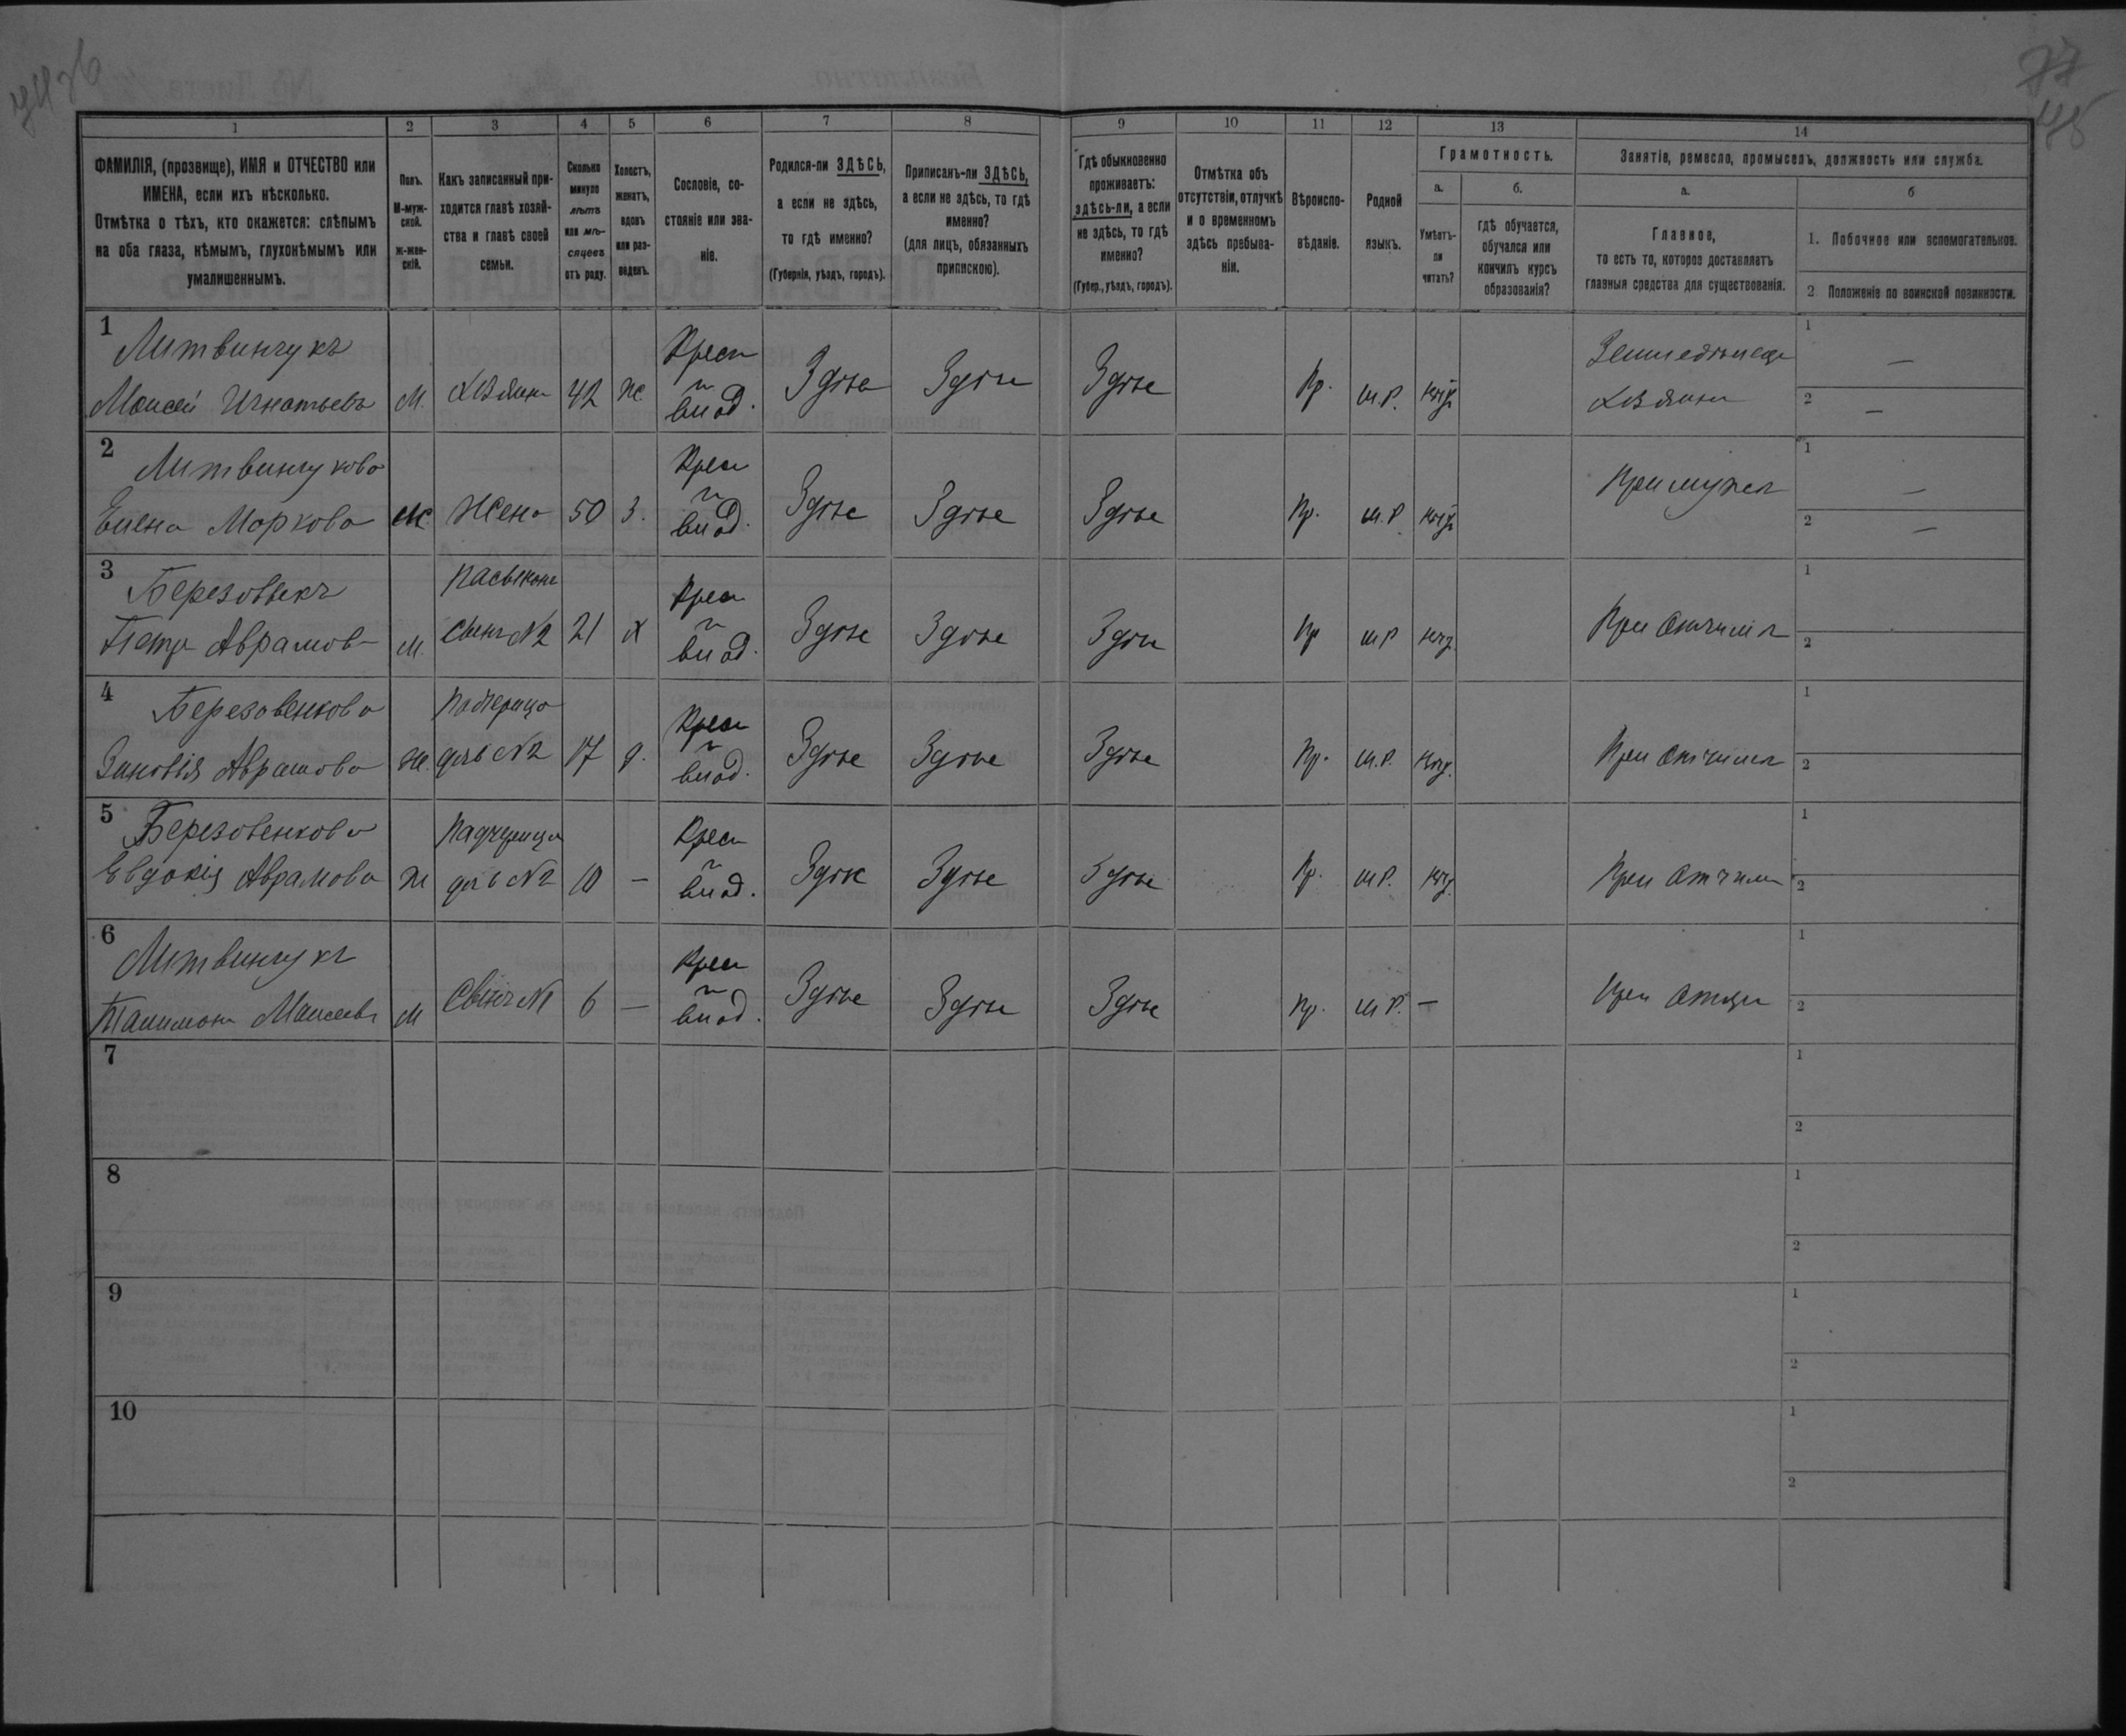 77
1
2
3
4
5
6
7
8
9
10
11
12
13
14
ФАМИЛІЯ, (прозвище), ИМЯ и ОТЧЕСТВО или
ИМЕНА, если ихъ нѣсколько.
Отмѣтка о тѣхъ, кто окажется: слѣпымъ
на оба глаза, нѣмымъ, глухонѣмымъ или
умалишеннымъ.
Полъ.
М-муж-
ской.
ж-жен-
скій.
Какъ записанный при-
ходится главѣ хозяй-
ства и главѣ своей
семьи.
Сколько
минуло
лѣтъ
или мѣ-
сяцевъ
отъ роду.
Холостъ,
женатъ,
вдовъ
или раз-
веденъ.
Сословіе, со-
стояніе или зва-
ніе.
Родился-ли ЗДѢСЬ,
а если не здѣсь,
то гдѣ именно?
(Губернія, уѣздъ, городъ).
Приписанъ-ли ЗДѢСЬ,
а если не здѣсь, то гдѣ
именно?
(для лицъ, обязанныхъ
припискою).
Гдѣ обыкновенно
проживаетъ:
здѣсь-ли, а если
не здѣсь, то гдѣ
именно?
(Губер., уѣздъ, городъ).
Отмѣтка объ
отсутствіи, отлучкѣ
и о временномъ
здѣсь пребыва-
ніи.
Вѣроиспо-
вѣданіе.
Родной
языкъ.
Грамотность.
а.
б.
Умѣетъ-
ли
читать?
гдѣ обучается,
обучался или
кончилъ курсъ
образованія?
Занятіе, ремесло, промыселъ, должность или служба.
а.
б
Главное,
то есть то, которое доставляетъ
главныя средства для существованія.
1. Побочное или вспомогательное.
2 Положеніе по воинской повинности.
1
Литвинчукъ
Моисей Игнатьевъ
М.
Хозяинъ
42
ж.
Крест
Здѣсь
Здѣсь
Здѣсь
Пр.
М.Р.
Земледѣлецъ
Хозяинъ
1
—
2
—
2
Литвинчукова
Елена Маркова
Ж.
Жена
50
З.
Крест
Здѣсь
Здѣсь
Здѣсь
Пр.
М.Р
При мужѣ
1
—
2
—
3
Березовекъ
Петръ Аврамов
М.
Пасынокъ
Сынъ №2
21
Х
Крест
Здѣсь
Здѣсь
Здѣсь
Пр
М Р
При отчимѣ
1
2
4
Березовенкова
Зиновія Аврамова
Ж.
Падчерица
дчь №2
17
д.
Крест
Здѣсь
Здѣсь
Здѣсь
Пр.
М.Р.
При отчимѣ
1
2
5
Березовенкова
Евдокія Аврамова
Ж
Падчерица
дчь №2
10
—
Крест
Здѣсь
Здѣсь
Здѣсь
Пр.
М Р.
При отчимѣ
1
2
6
Литвинчукъ
Моисеевъ
М
Сынъ №1
6
—
Крест
Здѣсь
Здѣсь
Здѣсь
Пр.
М Р.
—
При отцѣ
1
2
7
1
2
8
1
2
9
1
2
10
1
2